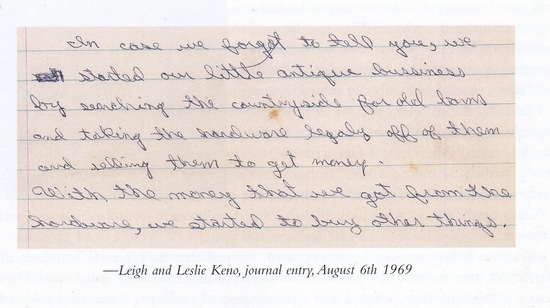 In case we forgot to tell you, we
started our little antique bussiness
by searching the countryside for old barns
and taking the hardware legaly off of them
and selling them to get money.
With the money that we got from the
hardware, we started to buy other things.
—Leigh and Leslie Keno, journal entry, August 6th 1969